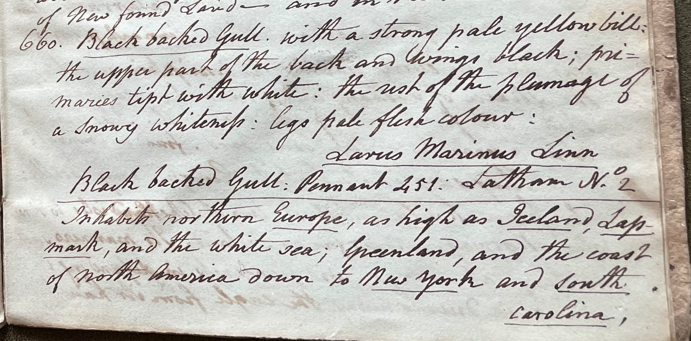 of New found Land— and in
660. Black backed Gull. with a strong pale yellow bill:
the upper part of the back and wings black; pri=
maries tipt with white: the rest of the plumage of
a snowy whiteness: legs pale flesh colour:
Larus Marinus Linn
Black backed Gull: Pennant 451. Latham No. 2
Inhabits northern Europe, as high as Iceland, Lap
mark, and the white sea; Greenland, and the coast
of north America down to New york and south
carolina,